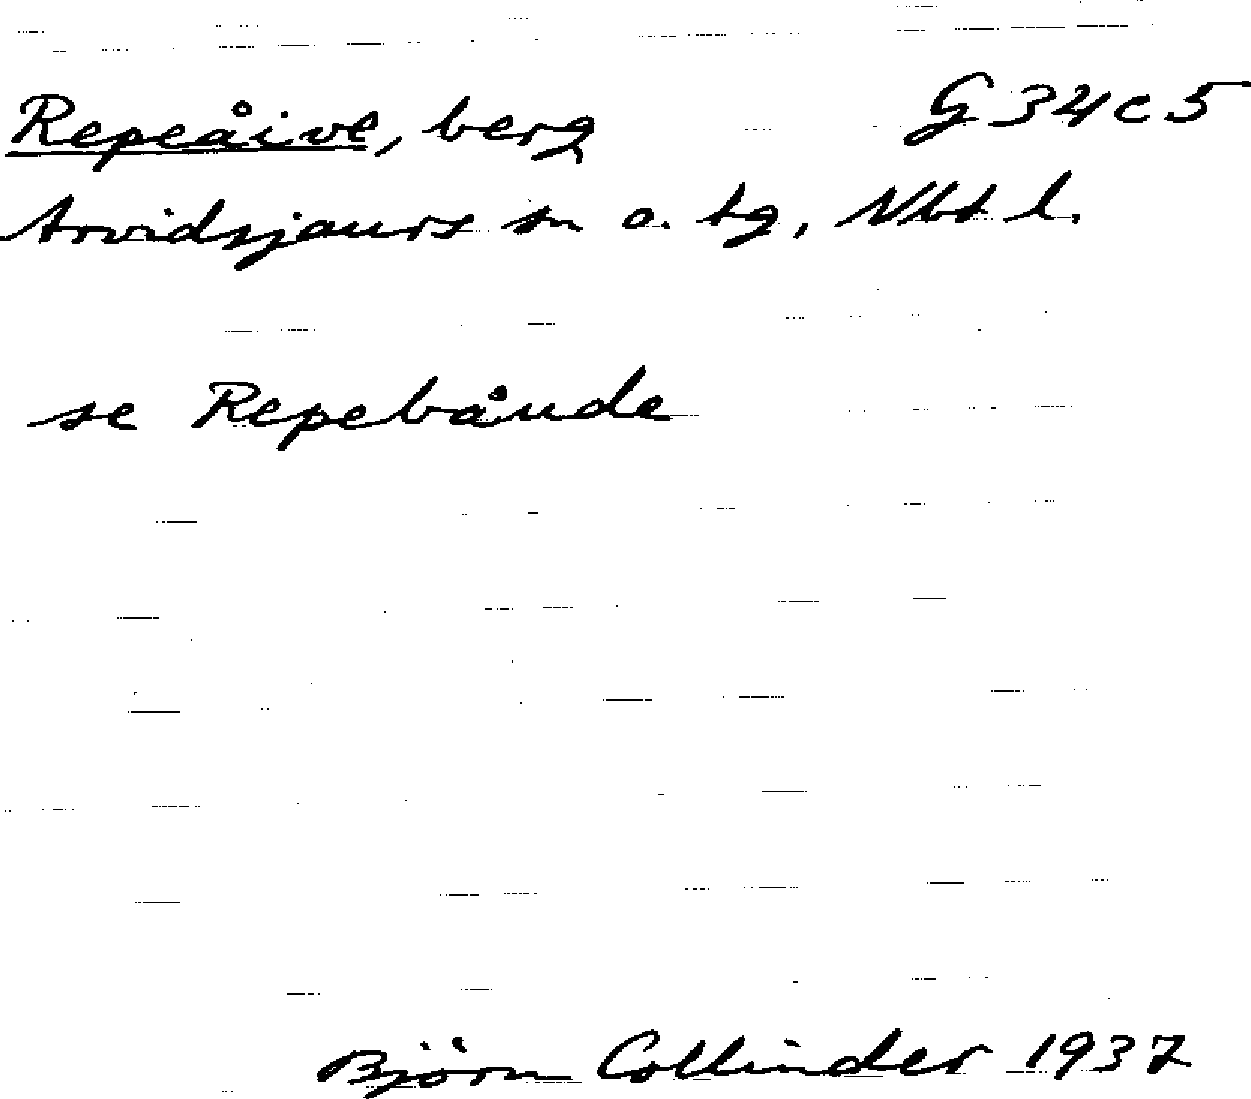 Repeåive, berg G 34 c 5
Arvidsjaurs sn o. tg, Nbt l.
se Repebånde
Björn Collinder 1937